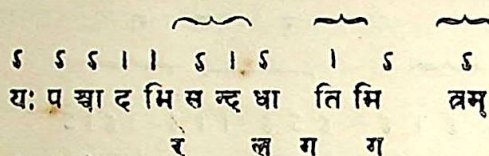 ऽ ऽ ऽ । । ऽ । ऽ । ऽ ऽ
यः प श्चा द भि स न्द धा ति मि त्रम्
र ल ग ग्